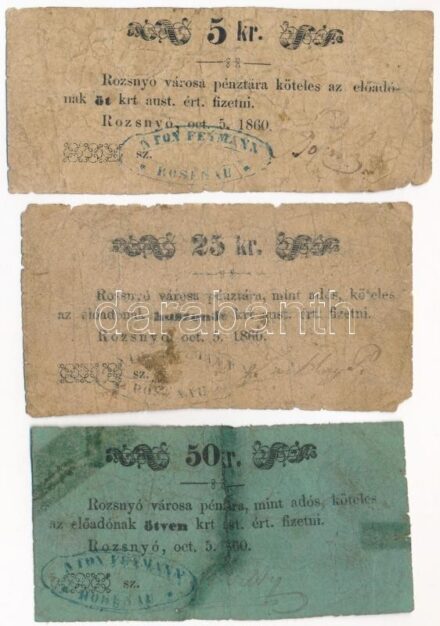 5 kr.
Rozsnyó városa pénztára köteles az előadó-
nak öt krt aust. ért. fizetni.
Rozsnyó, oct. 5. 1860.
sz.
ANTON FEYMANN
ROSENAU
25 kr.
Rozsnyó városa pénztára, mint adós, köteles
az előadónak krt aust. ért. fizetni.
Rozsnyó, oct. 5. 1860.
sz.
ROSENAU
darabanth
50 kr.
Rozsnyó városa pénztára, mint adós, köteles
az előadónak ötven krt ért. fizetni.
Rozsnyó, oct. 5.
sz.
ANTON FEYMANN
ROSENAU